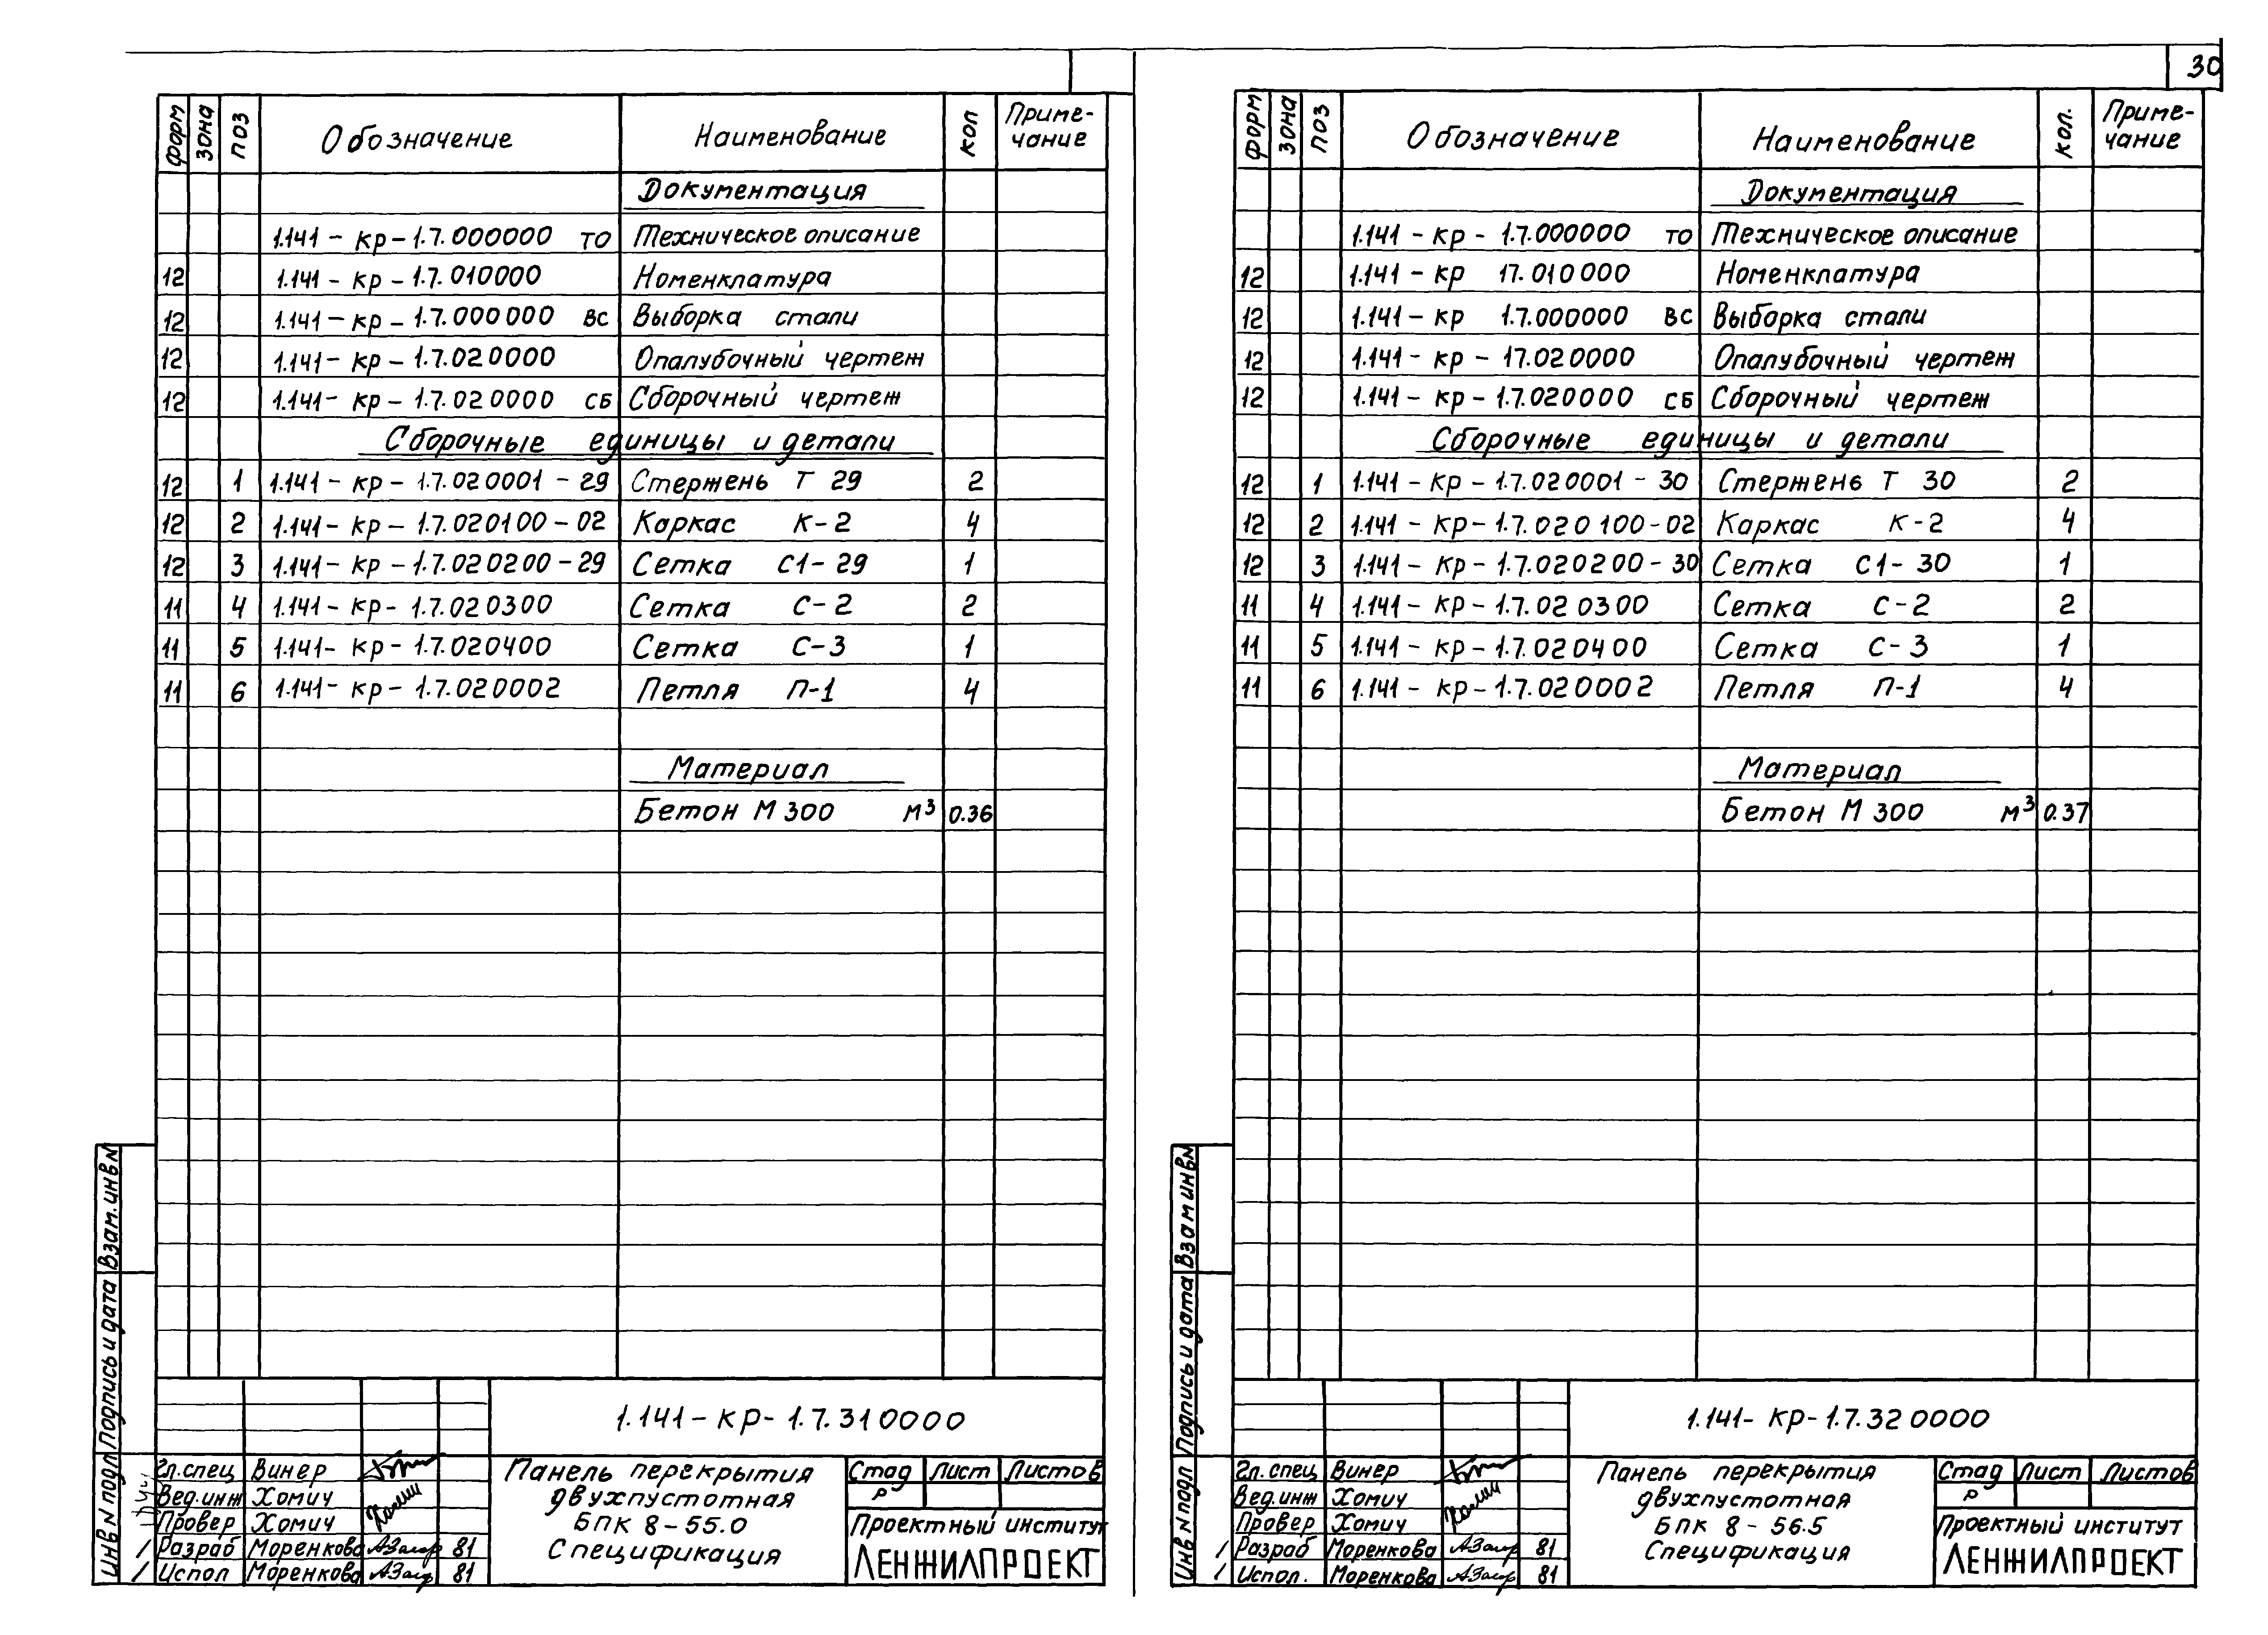 30
форм зона поз Обозначение Наименование кол Приме-
чание
Документация
1.141-кр-1.7.000000 ТО Техническое описание
12 1.141-кр-1.7.010000 Номенклатура
12 1.141-кр-1.7.000000 ВС Выборка стали
12 1.141-кр-1.7.020000 Опалубочный чертеж
12 1.141-кр-1.7.020000 СБ Сборочный чертеж
Сборочные единицы и детали
12 1 1.141-кр-1.7.020001-29 Стержень Т 29 2
12 2 1.141-кр-1.7.020100-02 Каркас К-2 4
12 3 1.141-кр-1.7.020200-29 Сетка С1-29 1
11 4 1.141-кр-1.7.020300 Сетка С-2 2
11 5 1.141-кр-1.7.020400 Сетка С-3 1
11 6 1.141-кр-1.7.020002 Петля П-1 4
Материал
Бетон М300 м³ 0.36
Взам.инв№
Подпись и дата
Инв № подл
1.141-кр-1.7.310000
Гл.спец Винер
Вед.инж Хомич
Провер Хомич
Разраб Моренкова 81
Испол Моренкова 81
Панель перекрытия
двухпустотная
БПК 8-55.0
Спецификация
Стад Лист Листов
Р
Проектный институт
ЛЕНЖИЛПРОЕКТ
форм зона поз Обозначение Наименование кол. Приме-
чание
Документация
1.141-кр-1.7.000000 ТО Техническое описание
12 1.141-кр 17.010000 Номенклатура
12 1.141-кр 1.7.000000 ВС Выборка стали
12 1.141-кр-17.020000 Опалубочный чертеж
12 1.141-кр-1.7.020000 СБ Сборочный чертеж
Сборочные единицы и детали
12 1 1.141-кр-1.7.020001-30 Стержень Т 30 2
12 2 1.141-кр-1.7.020100-02 Каркас К-2 4
12 3 1.141-кр-1.7.020200-30 Сетка С1-30 1
11 4 1.141-кр-1.7.020300 Сетка С-2 2
11 5 1.141-кр-1.7.020400 Сетка С-3 1
11 6 1.141-кр-1.7.020002 Петля П-1 4
Материал
Бетон М300 м³ 0.37
Взам инв№
Подпись и дата
Инв № подл
1.141-кр-1.7.320000
Гл.спец Винер
Вед.инж Хомич
Провер Хомич
Разраб Моренкова 81
Испол. Моренкова 81
Панель перекрытия
двухпустотная
БПК 8-56.5
Спецификация
Стад Лист Листов
Р
Проектный институт
ЛЕНЖИЛПРОЕКТ